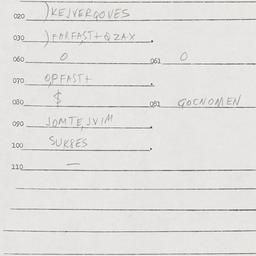 020 )KEJVERQOVES
030 )FARFAST+QZAX.
060 O 061 O
070 OPFAST+.
080 $ 081 GOCNOMEN
090 JOMTEJVIM.
100 SUKRES.
110 —